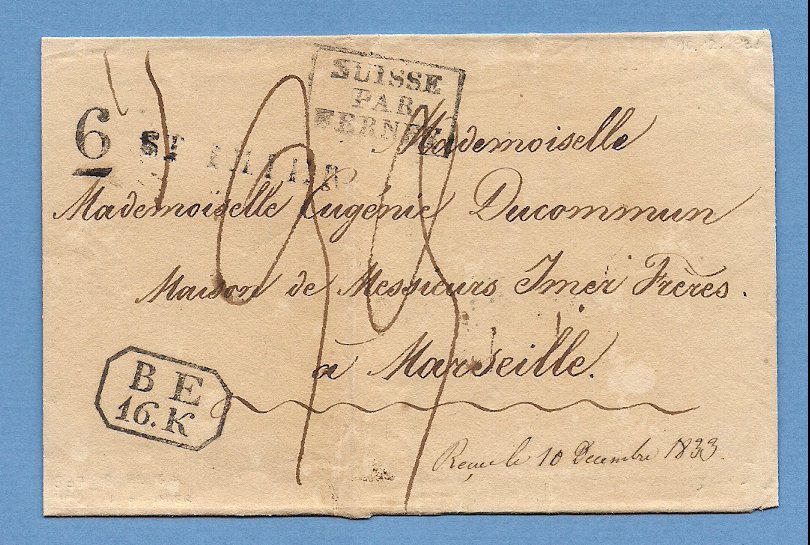 SUISSE
PAR
FERNEY
6
ST
Mademoiselle
Mademoiselle Eugénie Ducommun
Maison de Messieurs Imer Frères.
à Marseille.
B E
16. K
Reçue le 10 Decembre 1833